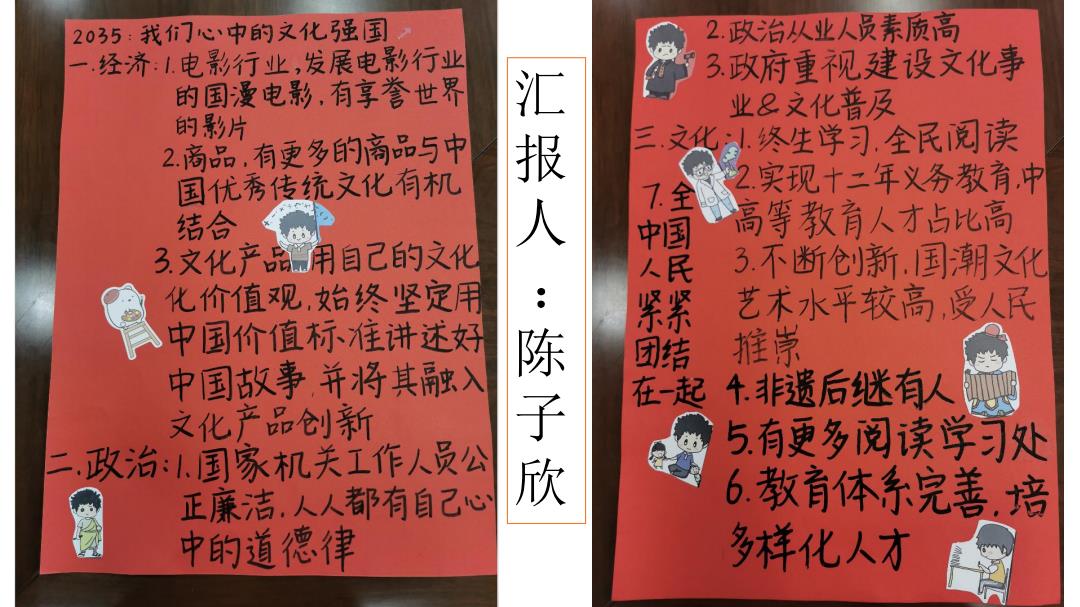 2035:我们心中的文化强国
一.经济:1.电影行业,发展电影行业
的国漫电影,有享誉世界
的影片
2.商品,有更多的商品与中
国优秀传统文化有机
结合
3.文化产品用自己的文化
化价值观,始终坚定用
中国价值标准讲述好
中国故事,并将其融入
文化产品创新
二.政治:1.国家机关工作人员公
正廉洁,人人都有自己心
中的道德律
汇报人:陈子欣
2.政治从业人员素质高
3.政府重视建设文化事
业&文化普及
三.文化:1.终生学习,全民阅读
2.实现十二年义务教育,中
高等教育人才占比高
3.不断创新,国潮文化
艺术水平较高,受人民
推崇
4.非遗后继有人
5.有更多阅读学习处
6.教育体系完善,培
多样化人才
7.全
中国
人民
紧紧
团结
在一起